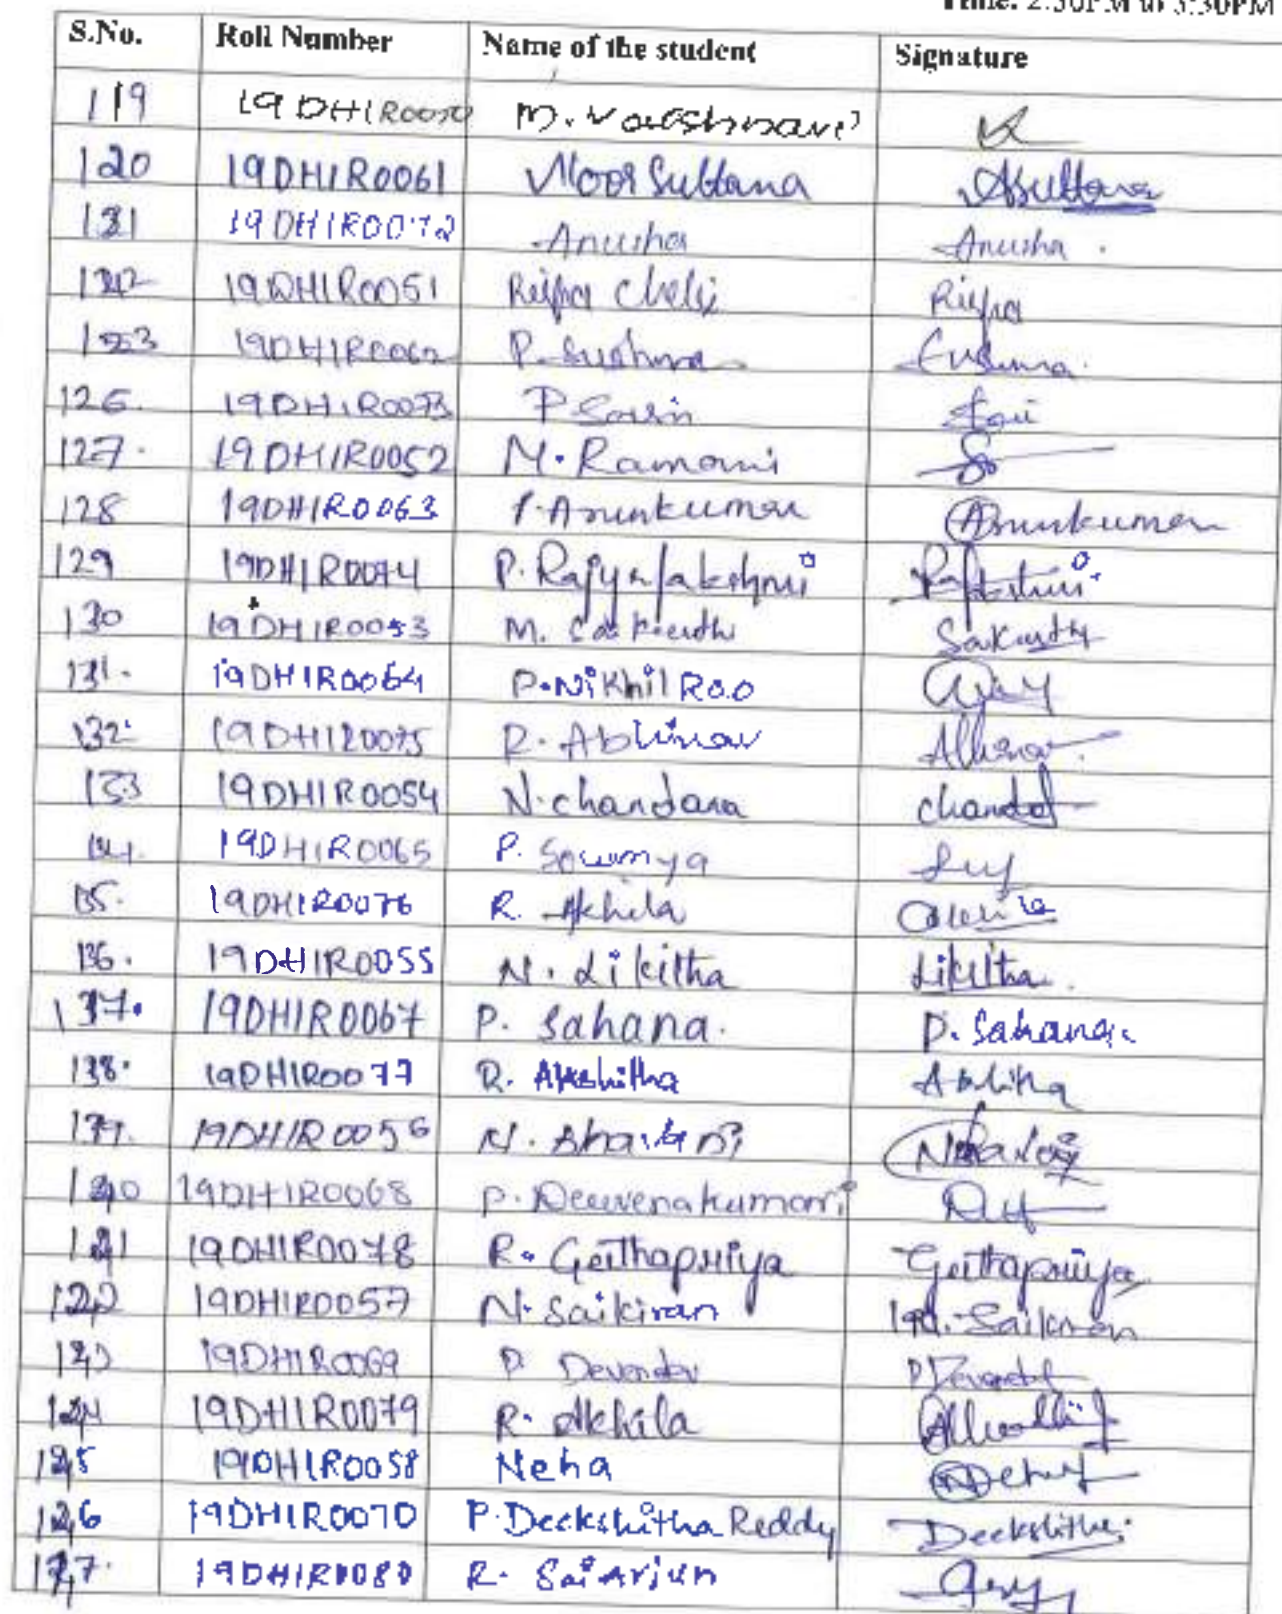 Time: 2:30PM to 3:30PM
S.No. Roll Number Name of the student Signature
119 19DH1R0050 M. Vaishnavi
120 19DH1R0061 Noor Sultana ASultana
121 19DH1R0072 Anusha Anusha.
122 19DH1R0051 Ripa
123 19DH1R0062 P. Sushma
126. 19DH1R0073 P
127. 19DH1R0052 M. Ramani
128 19DH1R0063 Arunkumar Arunkumar
129 19DH1R0074 P. Rajyalakshmi
130 19DH1R0053 M.
131. 19DH1R0064 P. Nikhil Rao
132. 19DH1R0075 R. Abhinav Abhinav
133 19DH1R0054 N. chandana
134. 19DH1R0065 P. Sowmya
135. 19DH1R0076 R. Akhila
136. 19DH1R0055 N. Likitha Likitha.
137. 19DH1R0067 P. Sahana. P. Sahana.
138. 19DH1R0077 R. Akshitha
139. 19DH1R0056 N.
140 19DH1R0068 P. Deevenakumari
141 19DH1R0078 R. Geethapriya Geethapriya
19DH1R0057 N. Saikiran Saikiran
19DH1R0069 P. Devender P Devender
19DH1R0079 R. Akhila
19DH1R0058 Neha
19DH1R0070 P. Deekshitha Reddy Deekshitha
19DH1R0080 R. Sai Arjun